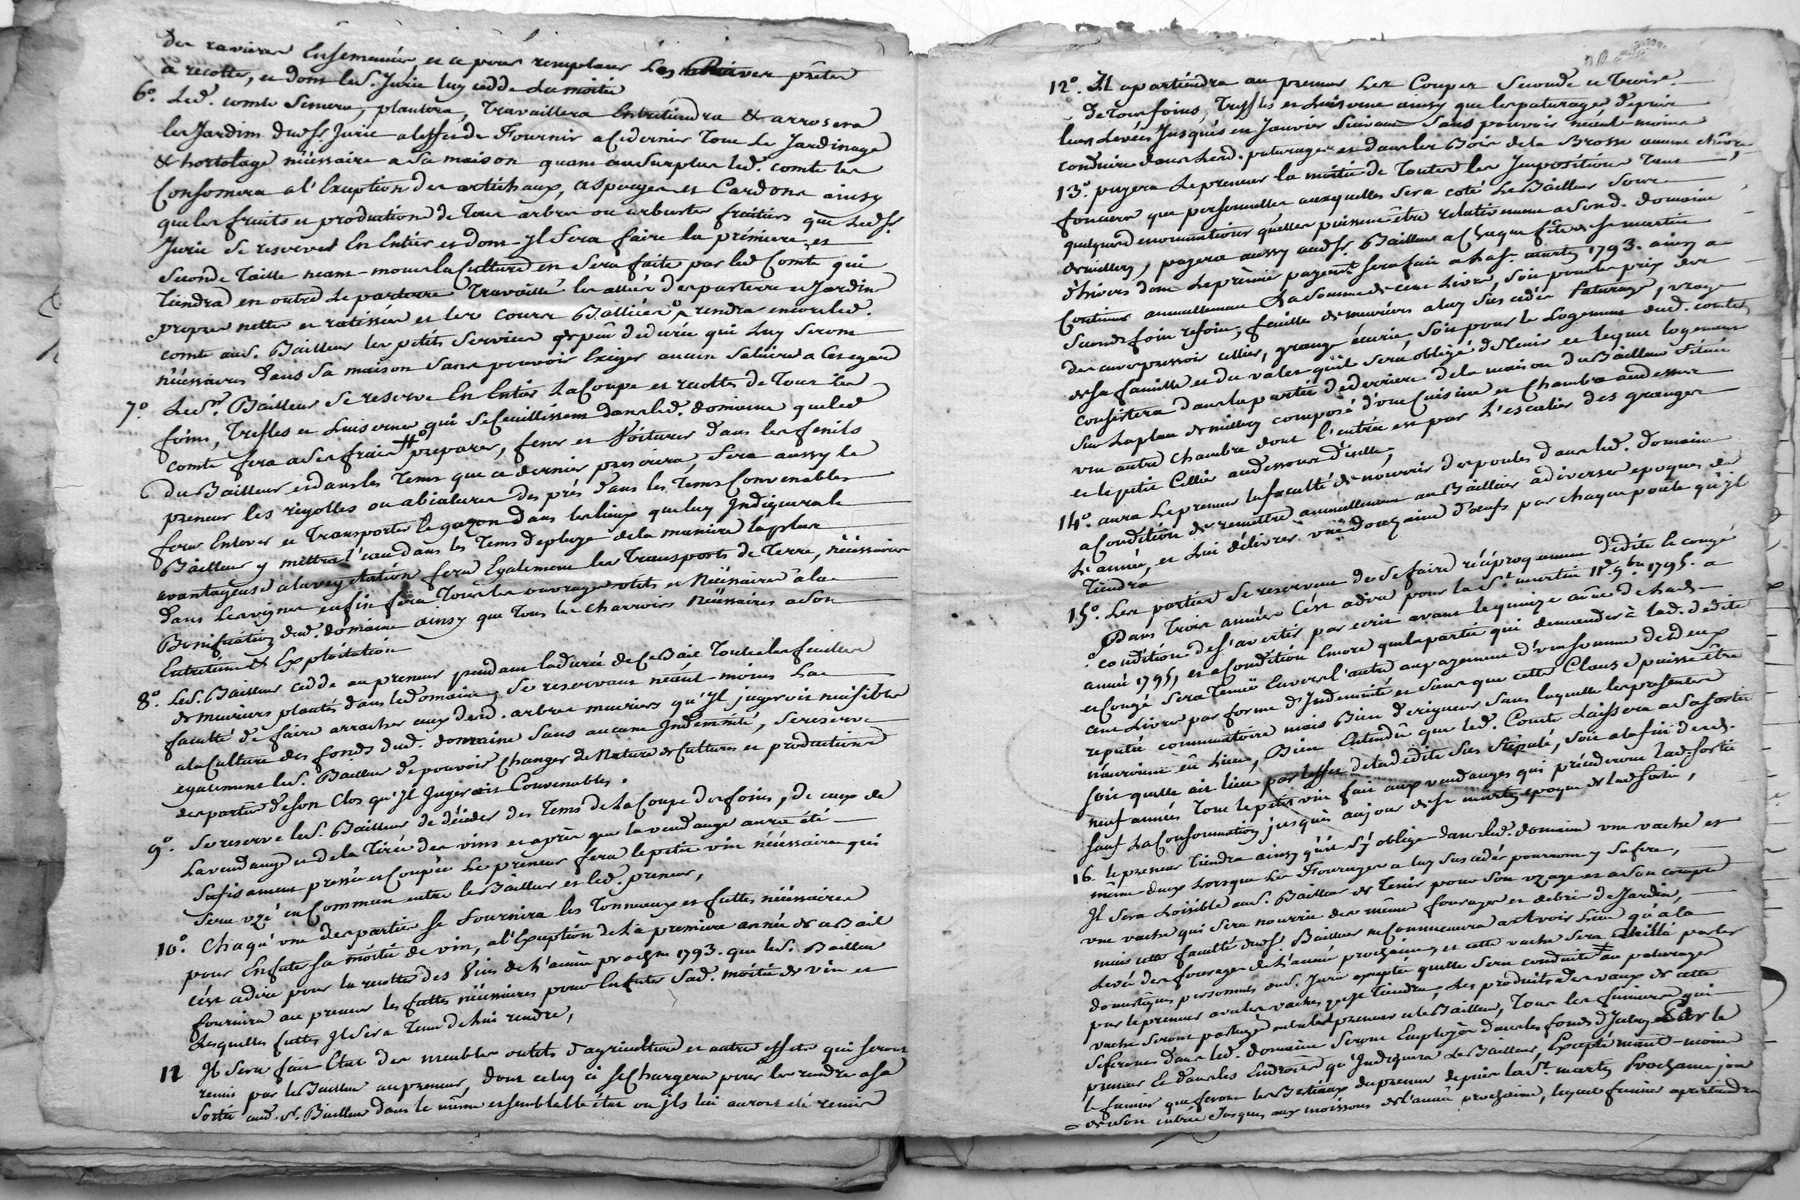 des raviers Ensemencées, et ce pour remplacer Les prêter
a recolter, et dont led. S. Jurie luy cedde La moitié
6.° Led. comte Semera, plantera, Travaillera Entretiendra & arrosera
les Jardins duds Jurie a leffet de Fournir a Cedernier Tout Le Jardinage
& hortolage néessaire a Sa maison quant au Surplus led. comte les
Consomera a l'Exception des artichaux, asperges et Cardons ainsy
que les fruits et production de Tous arbres ou arbustes fruitiers que Leds.
Jurie Se reserve En Entier et dont Jl fera faire la prémiere et
Seconde Taille neant-moins la Culture en Sera faite par led Comte qui
Tiendra en outre Le parterre Travaillé les allées du parterre et Jardin
propres nettes et ratissées et les cours Balliées rendra encore led.
comte aud. Bailleur les petits Services qui Luy Seront
néessaires dans Sa maison Sans pouvoir Exiger aucun Salaire a Cet egard
7.° Led. Sr. Bailleur Se reserve En Entier La Coupe et recolte de Tous les
foins, Trefles et Luiserne qui Se Ceuillissent dans led. domaine que led
comte fera a Ses frais preparer, fener et Voiturer dans les fenils
du Bailleur et dans les Tems que ce dernier prescrira, Sera aussy le
preneur les rigolles ou abialures des prés dans les Tems Convenables
fera Enlever et Transporter le gazon dans les lieux que luy Indiquera le
Bailleur y mettra l'eau dans les Tems de pluye de la maniere la plus
avantageuse a la vegetation fera Egalement les Transports de Terre, néessaires
dans les vignes enfin fera Tous les ouvrages utils et Néessaires a la
Bonification dud. domaine ainsy que Tous les charrois Néessaires a Son
Entretien & Exploitation
8.° Led. Bailleur cedde au preneur pendant la durée de Ce Bail Toutes les feuilles
de muriers plantés dans le domaine, Se reservant néant-moins La
faculté de faire arracher ceux desd. arbres muriers qu'Jl jugeroit nuisibles
a la Culture des fonds dud. domaine Sans aucune Jndemnité, Se reserve
egalement led. Bailleur de pouvoir Changer de Nature de Cultures et productions
des parties de Son Clos qu'Jl Jugeroit Convenables.
9.° Se reserve led. Bailleur de décider des Tems de La Coupe des foins, de ceux de
La vendange et de la Tirée des vins et après que la vendange aura été
Safisament pressée et Coupée Le preneur fera le petit vin néessaire qui
Sera uzé en Commun entre le Bailleur et led. preneur,
10.° Chaqu'une des parties Se Fournira les Tonneaux et futtes néessaires
pour Enfuter Sa moitié de vin, a l'Exception de La premiere année de ce Bail
c'est adire pour la recolte des Vins de L'année prochne. 1793. que led. Bailleur
fournira au preneur les futtes néessaires pour Enfuter Sad. moitié de vin et
Lesquelles futtes Jl Sera Tenu de lui rendre,
11 Jl Sera fait Etat des meubles outils d'agriculture et autres effets qui Seront
remis par le Bailleur au preneur, dont celuy ci Se Chargera pour les rendre a Sa
Sortie aud. Sr. Bailleur dans le même et semblable état ou ils lui auront été remis
12.° Jl apartiendra au preneur Les Coupes Seconde et Troise.
de Tous foins, Treffles et Luiserne ainsy que les paturages depuis
leurs Levées Jusques en Janvier Suivant Sans pouvoir néant-moins
conduire dans lesd. paturages et dans les Bois de la Brosse aucune chêvre
13.° payera Le preneur la moitié de Toutes les Jmpositions Tant
foncieres que personnelles auxquelles Sera coté Le Bailleur Sous
quelques denominations quelles puissent être relativement a Sond. domaine
de millery, payera aussy auds Bailleur a Chaque fête de St martin
d'hivers dont Le prémier payemt. Sera fait a la St. martin 1793. ainsy a
Continuer annuellement La Somme de cent Livres, Soit pour le prix des
Seconds foin refoin, feuilles de meuriers a luy Sus cedés Paturage, uzage
des cuves pressoir cellier, grange écurie, Soit pour le Logement dud. comte
de Sa famille et du valet qu'il Sera obligé de Tenir et lequel logement
Consistera dans la partie de derriere de la maison du Bailleur Située
Sur la place de millery composé d'une Cuisine et Chambre au dessus
une autre Chambre dont l'entrée est par L'escalier des granges
et le petit Cellier audessous d'icelle,
14.° aura Le preneur la faculté de nourrir des poules dans led. domaine
a Condition de remettre annuellement au Bailleur a diverses epoques de
L'année, et Lui délivrer une douzaine d'œufs par chaque poule qu'Jl
Tiendra
15.° Les parties Se reservent de Se faire réciproquement dédite le congé
Dans Trois années C'est adire pour la St. martin 11e. 9bre. 1795. a
condition de S'avertir par ecrit avant le quinze aoust de lad.
année 1795, et a Condition Encore que la partie qui demandera à lad. dédite
et Congé Sera Tenue Envers l'autre au payement d'une Somme de deux
cent Livres par forme d'Jndemnité et Sans que cette Clause puisse être
reputée comminatoire mais Bien de rigueur Sans laquelle les presentes
n'auroient eu Lieu, Bien Entendu que led. Comte Laissera a Sa Sortie
Soit qu'elle ait lieu par l'effet de la dédite Sus Stipulé, Soit a la fin desd.
neuf années Tout le petit vin fait aux vendanges qui précéderont lad. Sortie
Sauf La Consommation jusques au jour de St martin epoque de lad. Sortie,
16. le preneur Tiendra ainsy qu'il S'y oblige dans led. domaine une vache et
même deux Lorsque Les Fourages a luy Sus cedés pourront y Sufire,
Jl Sera Loisible aud. Bailleur de Tenir pour Son uzage et a Son compte
une vache qui Sera nourrie des même fourages et debris de Jardin,
mais cette faculté duds Bailleur ne Commencera a avoir Lieu qu'a la
Levée des fourages de L'année prochaine, et cette vache Sera par les
domestiques personnels aud. S. Jurie excepté qu'elle Sera conduite au paturages
par le preneur avec les vaches qu'il Tiendra, Les produits des vaux de cette
vache Seront partagés entre led preneur et le Bailleur, Tous les fumiers qui
Se feront dans led. domaine Seront Employés dans les fonds d'Jceluy par le
preneur Et dans les Endroits qu'Indiquera Le Bailleur, Excepté néant-moins
le fumier que feront les Bestiaux du preneur depuis la St. martin prochaine jour
de Son entrée Jusques aux moissons de L'année prochaine, lequel fumier apartiendra